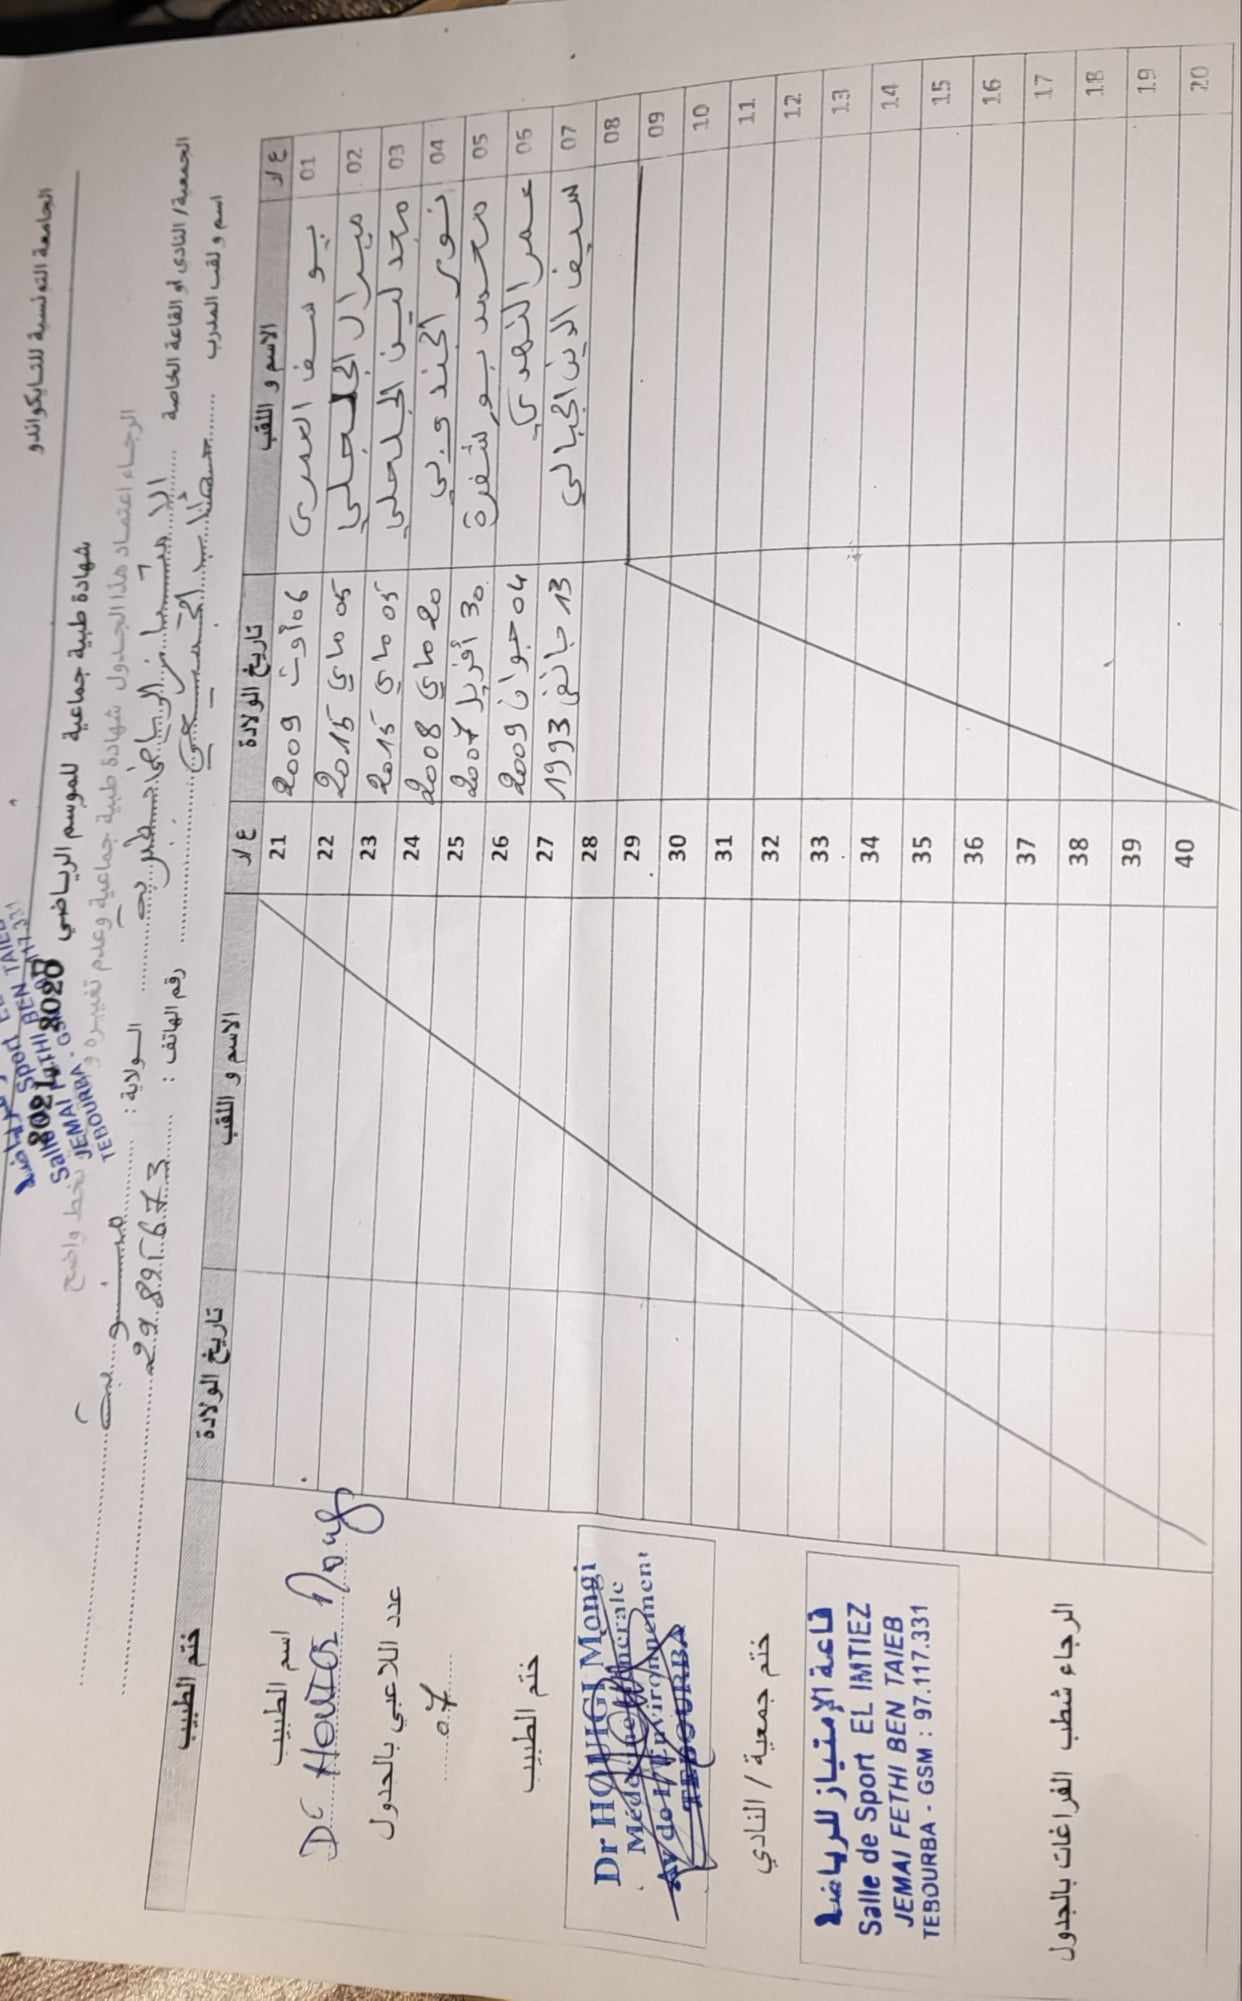 الجامعة التونسية للتايكواندو
شهادة طبية جماعية للموسم الرياضي 2020 2021
الرجاء اعتماد هذا الجدول شهادة طبية جماعية وعدم تغييره و بخط واضح
الجمعية/ النادي أو القاعة الخاصة الامتياز الرياضي بطبربة الولاية : منوبة
اسم و لقب المدرب رقم الهاتف :
ع/د الاسم و اللقب تاريخ الولادة ع/د الاسم و اللقب تاريخ الولادة ختم الطبيب
01 يوسف العمري 06 أوت 2009 21
02 ميرال الجلجلي 05 ماي 2015 22
03 مجدلين الجلجلي 05 ماي 2015 23
04 نور الجندوبي 20 ماي 2008 24
05 محمد بورشفرة 30 أفريل 2007 25
06 عمر النهدي 04 جوان 2009 26
07 سيف الدين الجبالي 13 جانفي 1993 27
08 28
09 29
10 30
11 31
12 32
13 33
14 34
15 35
16 36
17 37
18 38
19 39
20 40
اسم الطبيب
عدد اللاعبي بالجدول
07
ختم الطبيب
Dr HOUIGI Mongi
Médecine Générale
Av de l'Environnement
TEBOURBA
ختم جمعية / النادي
قاعة الإمتياز للرياضة
Salle de Sport EL IMTIEZ
JEMAI FETHI BEN TAIEB
TEBOURBA - GSM : 97.117.331
الرجاء شطب الفراغات بالجدول